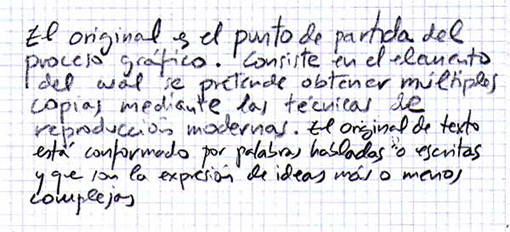 El original es el punto de partida del
proceso gráfico. Consiste en el elemento
del cual se pretende obtener múltiples
copias mediante las técnicas de
reproducción modernas. El original de texto
está conformado por palabras habladas o escritas
y que son la expresión de ideas más o menos
complejas